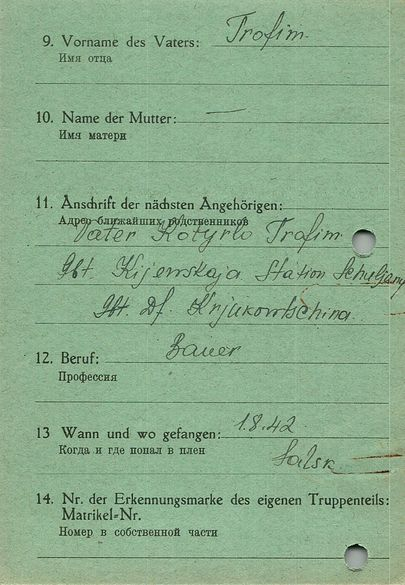 9. Vorname des Vaters: Trofim.
Имя отца
10. Name der Mutter: —
Имя матери
11. Anschrift der nächsten Angehörigen:
Адрес ближайших родственников
Vater Kotyrlo Trofim.
Gbt. Kijewskaja Station Schuljany
Gbt. Df. Krjukowtschina.
12. Beruf: Bauer
Профессия
13 Wann und wo gefangen: 1.8.42
Когда и где попал в плен
Salsk.
14. Nr. der Erkennungsmarke des eigenen Truppenteils:
Matrikel-Nr.
Номер в собственной части